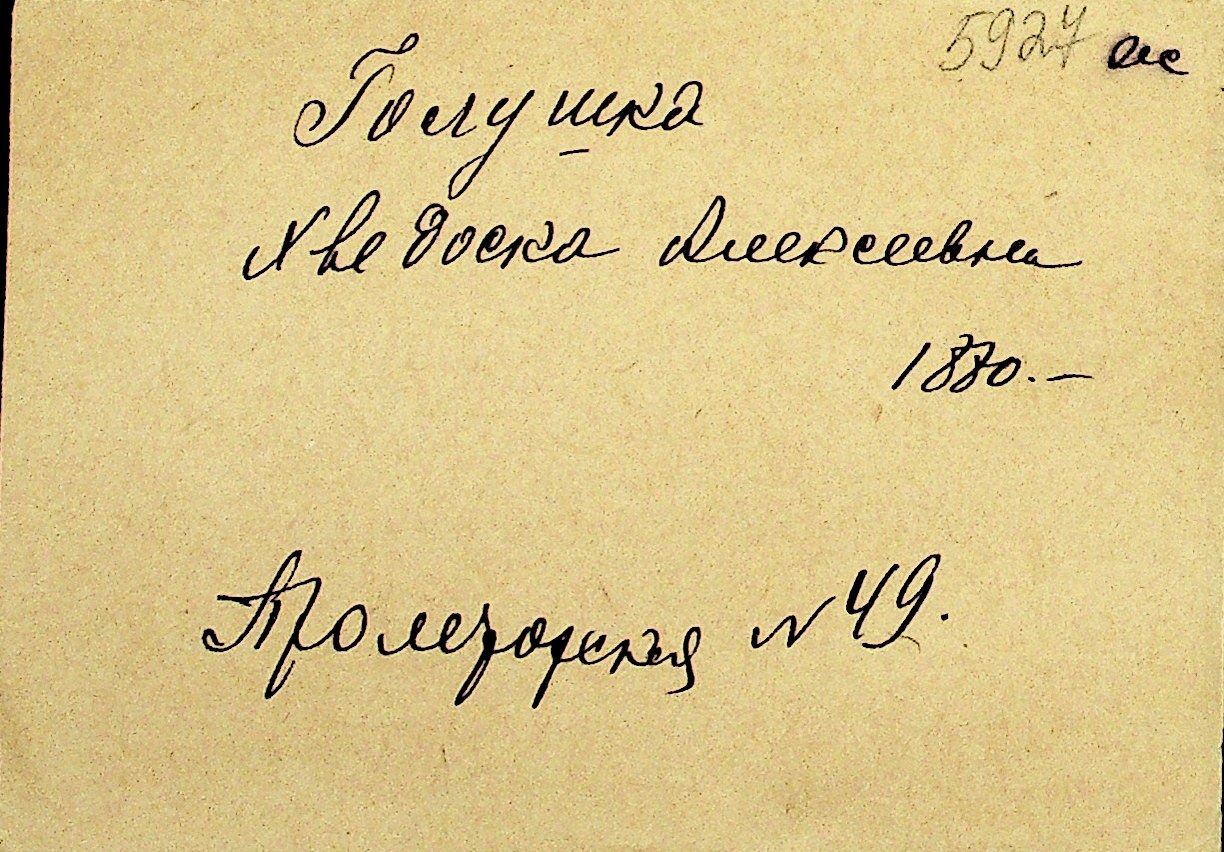 5927 ис
Голушка
Хведоска Алексеевна
1880.—
Пролетарская N 49.